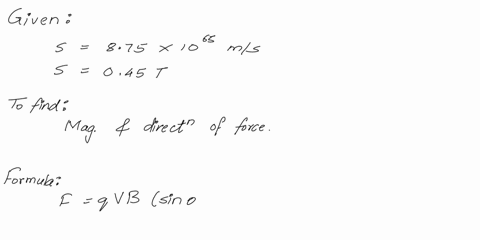 Given:
S = 8.75 × 10⁶⁵ m/s
S = 0.45 T
To find:
Mag. & directⁿ of force.
Formula:
F = qVB (sin o